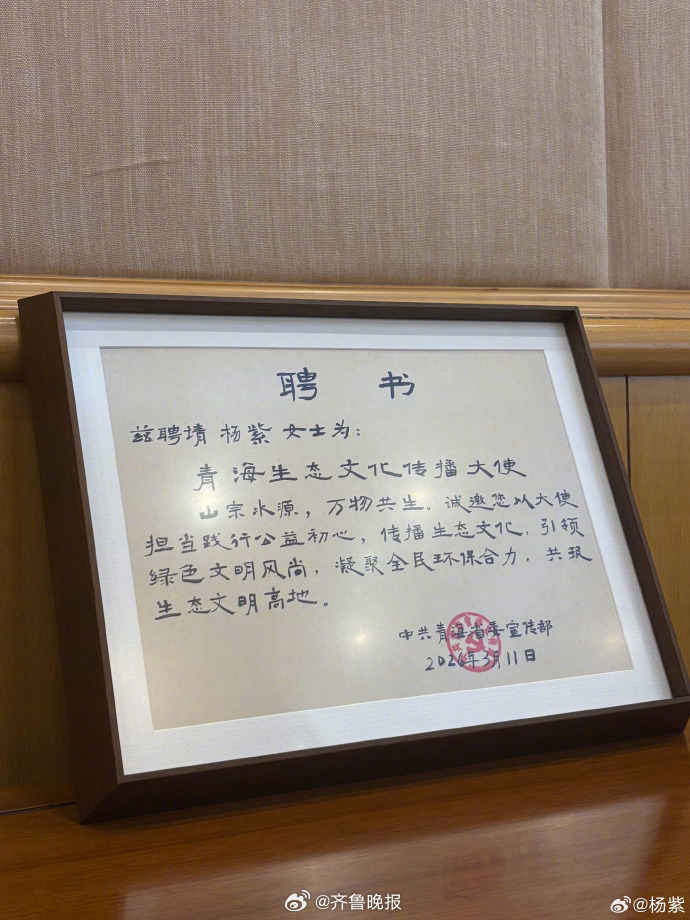 聘 书
兹聘请 杨紫 女士为：
青海生态文化传播大使
山宗水源，万物共生。诚邀您以大使
担当践行公益初心，传播生态文化，引领
绿色文明风尚，凝聚全民环保合力，共筑
生态文明高地。
中共青海省委宣传部
2026年3月11日
@齐鲁晚报
@杨紫